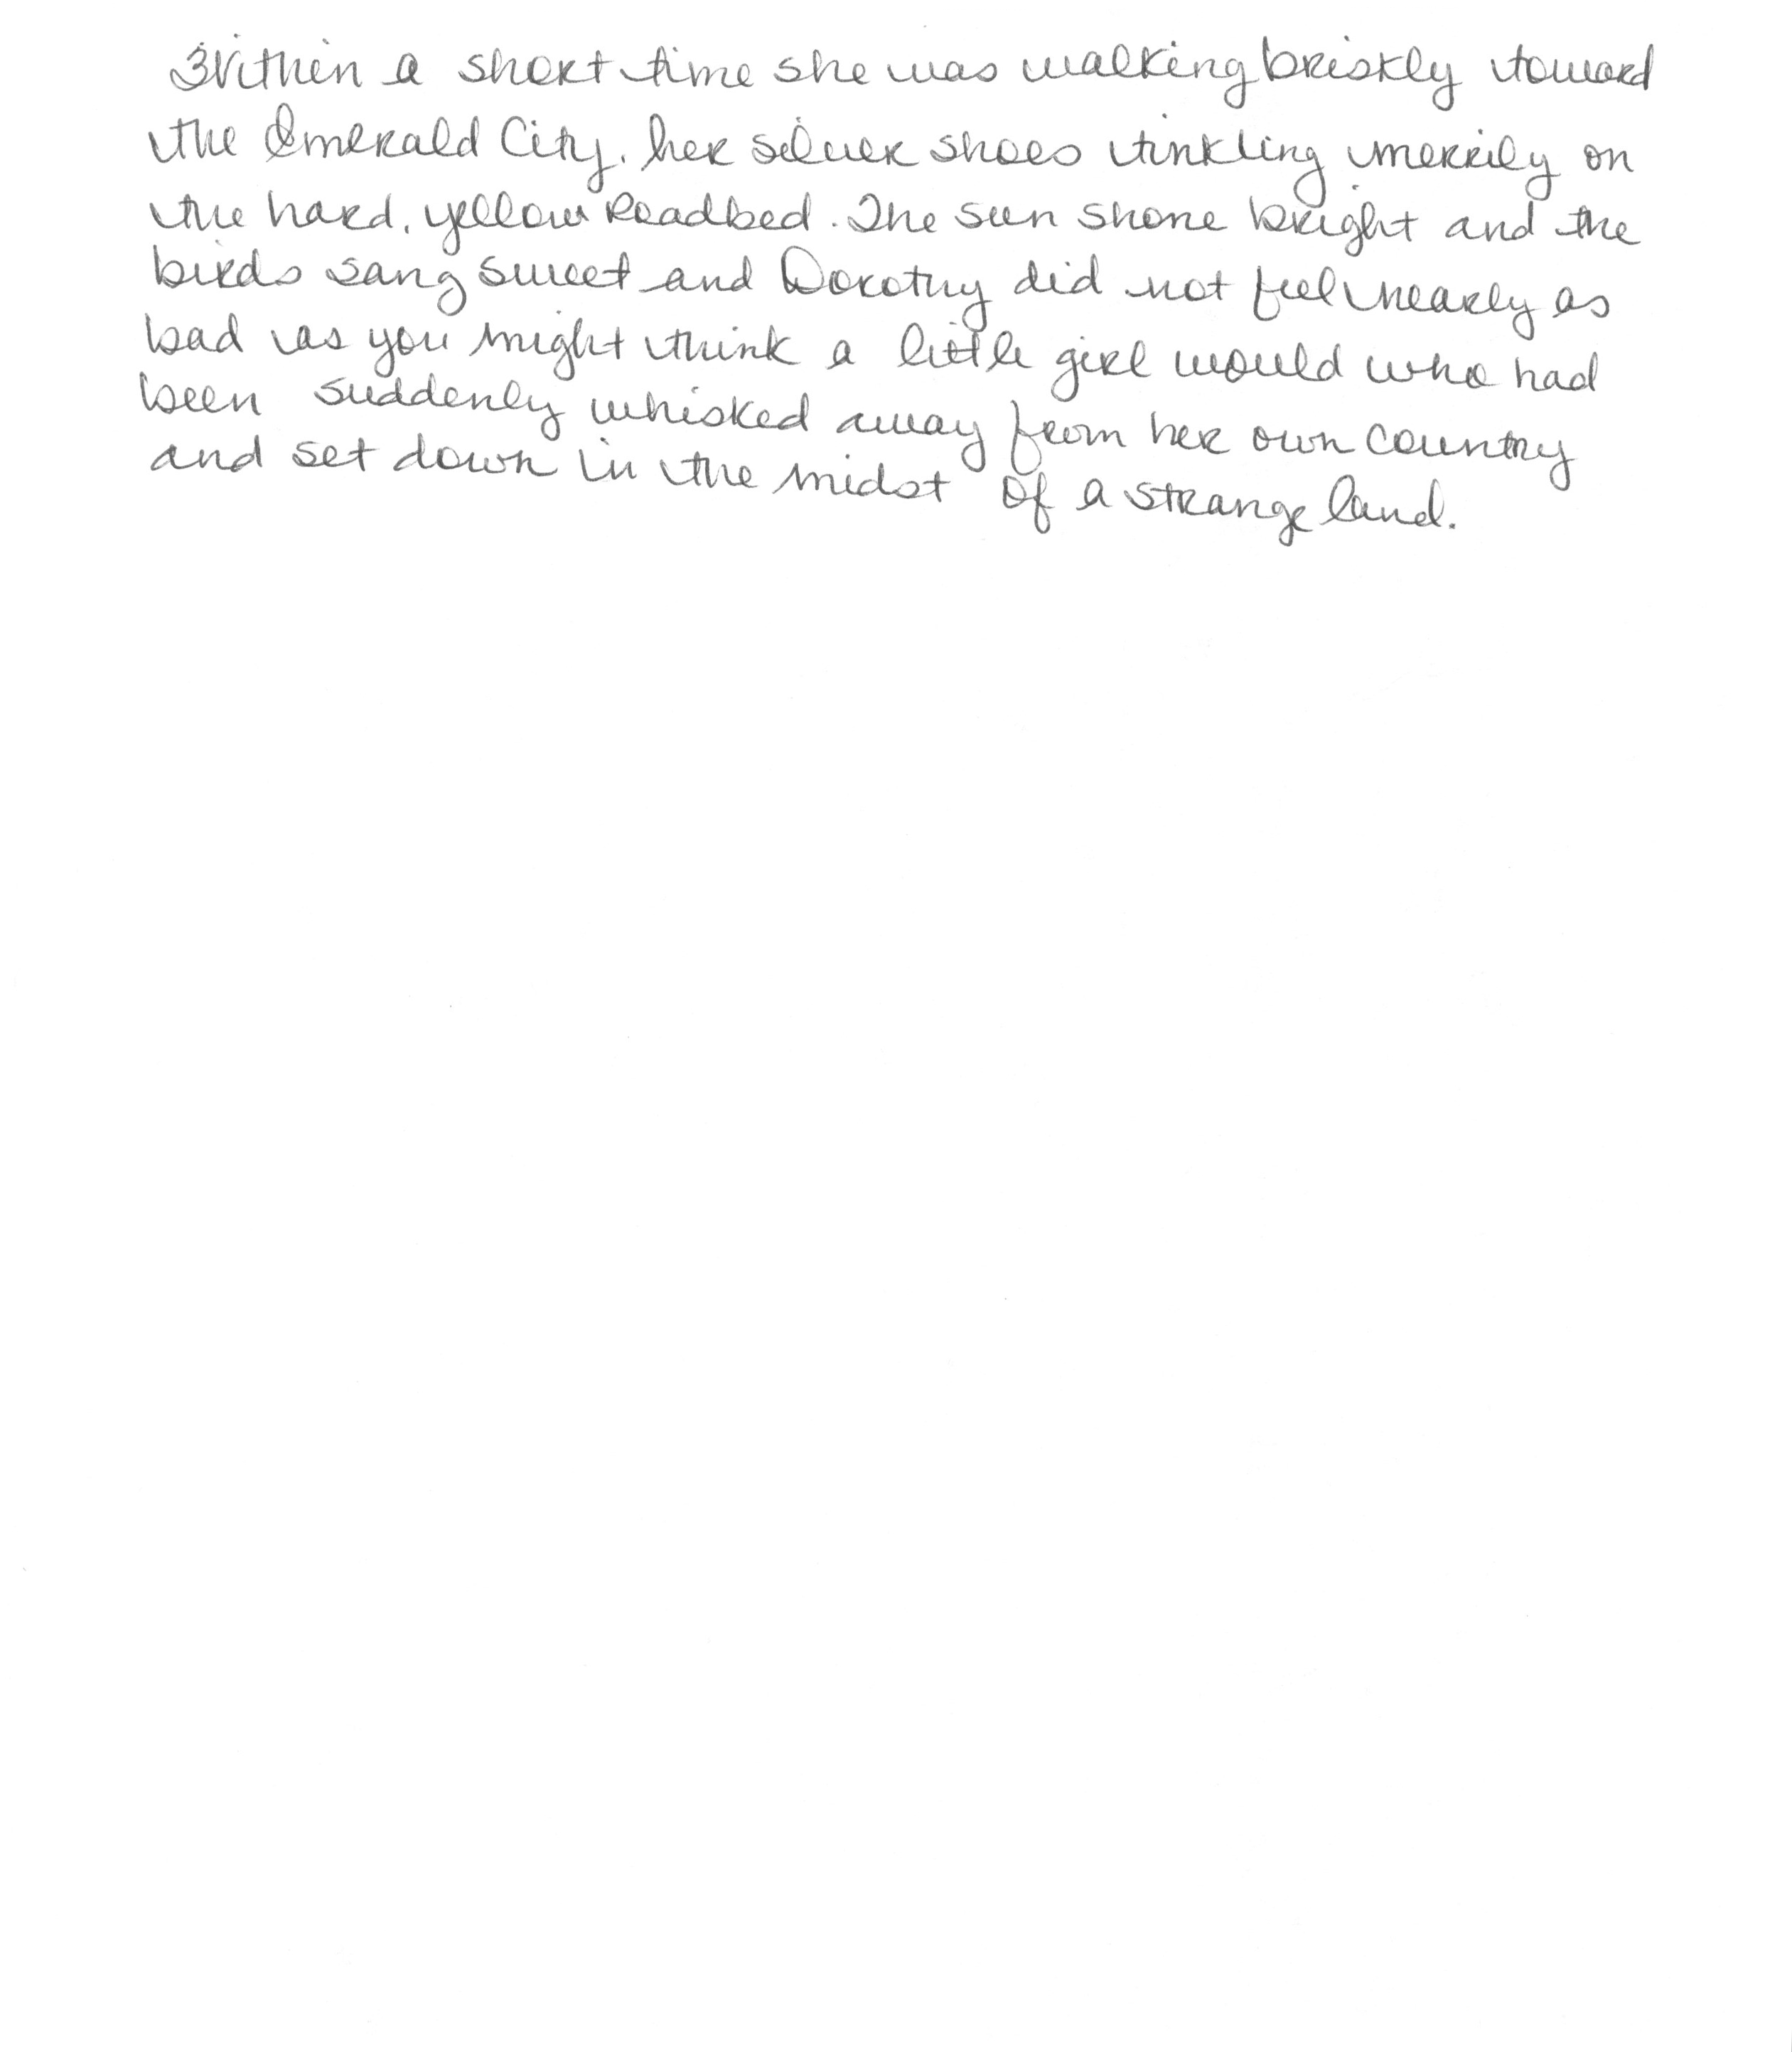 Within a short time she was walking briskly toward
the Emerald City, her silver shoes tinkling merrily on
the hard, yellow Roadbed. The sun shone bright and the
birds sang sweet and Dorothy did not feel nearly as
bad as you might think a little girl would who had
been suddenly whisked away from her own country
and set down in the midst of a strange land.